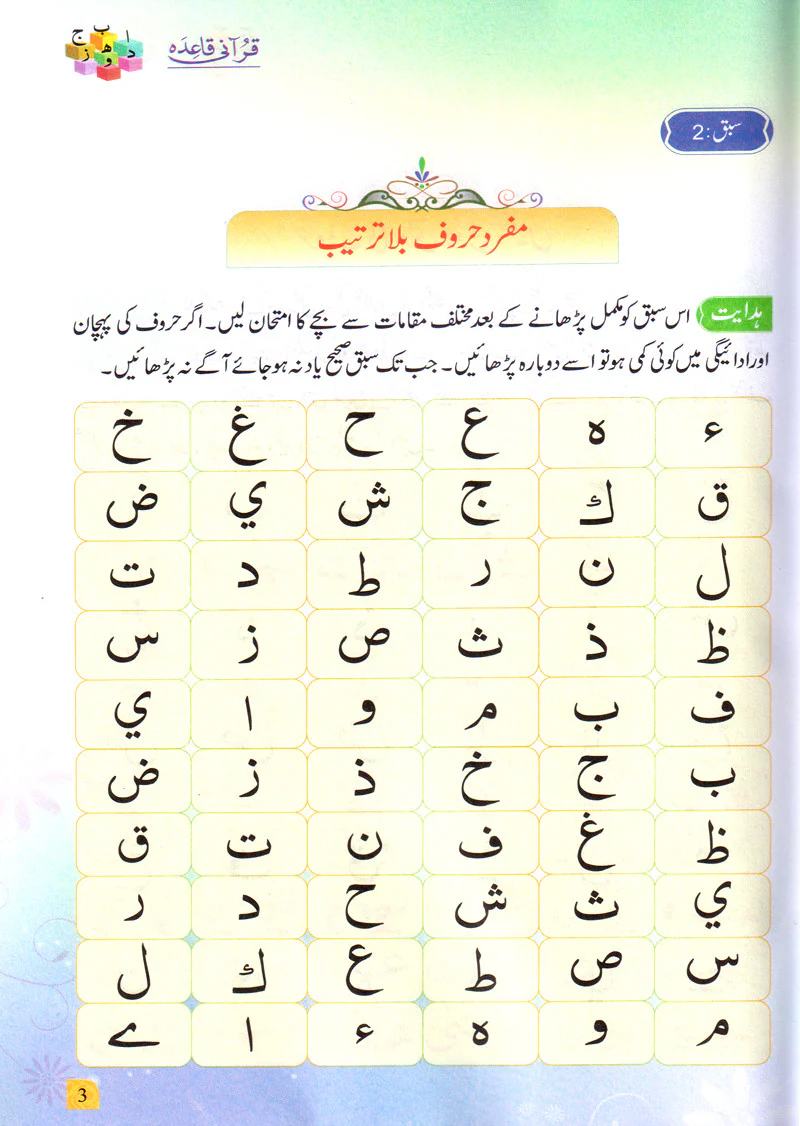 ا ب ج
د ھ ز
و
قرآنی قاعدہ
سبق: 2
مفرد حروف بلا ترتیب
ہدایت اس سبق کو مکمل پڑھانے کے بعد مختلف مقامات سے بچے کا امتحان لیں۔ اگر حروف کی پہچان
اور ادائیگی میں کوئی کمی ہو تو اسے دوبارہ پڑھائیں۔ جب تک سبق صحیح یاد نہ ہو جائے آگے نہ پڑھائیں۔
ء ہ ع ح غ خ
ق ك ج ش ي ض
ل ن ر ط د ت
ظ ذ ث ص ز س
ف ب م و ا ي
ب ج خ ذ ز ض
ظ غ ف ن ت ق
ي ث ش ح د ر
س ص ط ع ك ل
م و ہ ء ا ے
3